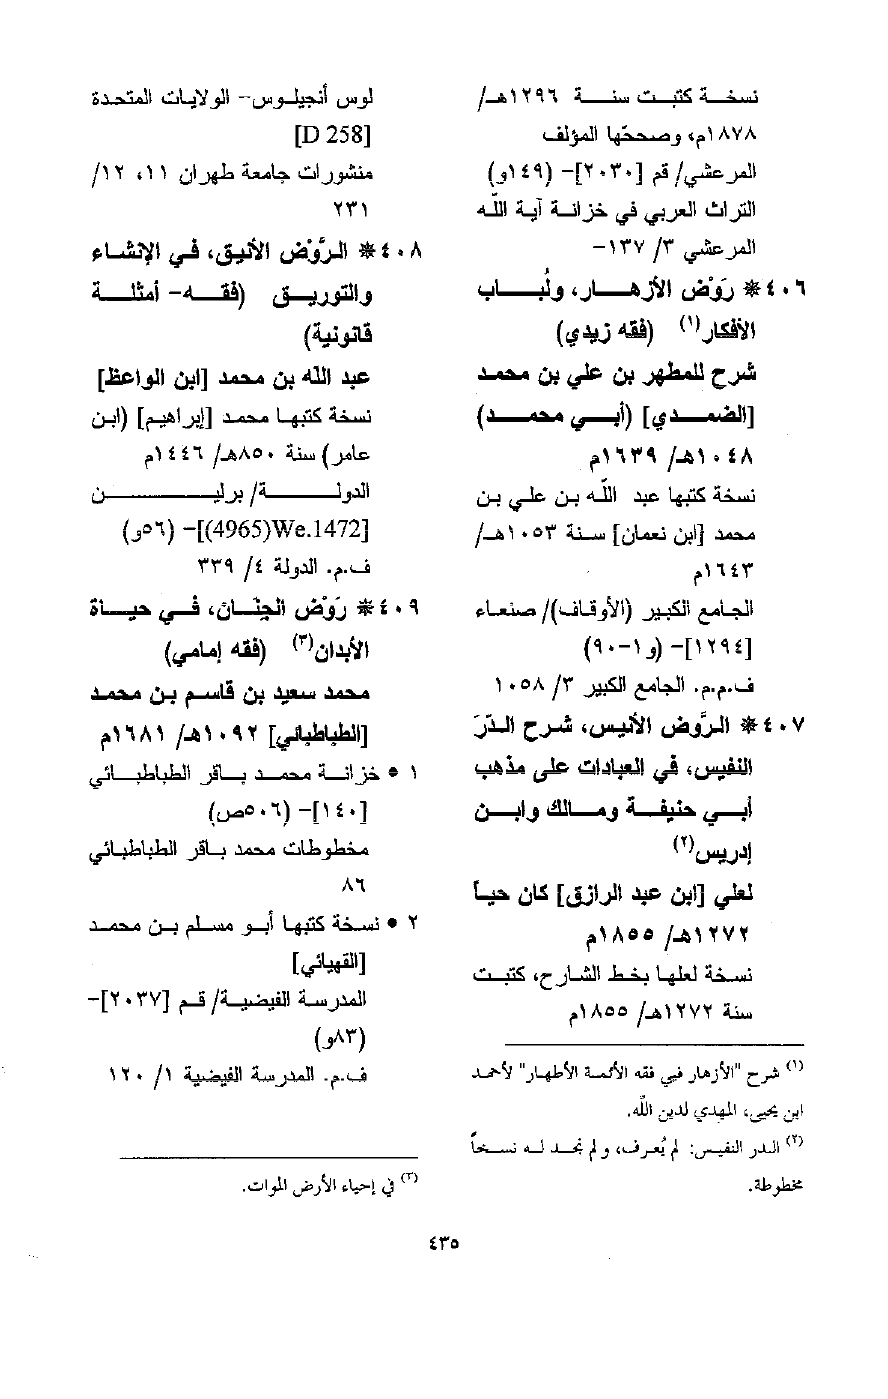 نسخة كتبت سنة ١٢٩٦هـ/
١٨٧٨م، وصححّها المؤلف
المرعشي/ قم [٢٠٣٠]- (١٤٩و)
التراث العربي في خزانة آية اللّه
المرعشي ٣/ ١٣٧-
٤٠٦* رَوْض الأزهار، ولُباب
الأفكار(١) (فقه زيدي)
شرح للمطهر بن علي بن محمد
[الضمدي] (أبي محمد)
١٠٤٨هـ/ ١٦٣٩م
نسخة كتبها عبد اللّه بن علي بن
محمد [ابن نعمان] سنة ١٠٥٣هـ/
١٦٤٣م
الجامع الكبير (الأوقاف)/ صنعاء
[١٢٩٤]- (و١-٩٠)
ف.م.م. الجامع الكبير ٣/ ١٠٥٨
٤٠٧* الرَّوض الأنيس، شرح الدّرَ
النفيس، في العبادات على مذهب
أبي حنيفة ومالك وابن
إدريس(٢)
لعلي [ابن عبد الرازق] كان حياً
١٢٧٢هـ/ ١٨٥٥م
نسخة لعلها بخط الشارح، كتبت
سنة ١٢٧٢هـ/ ١٨٥٥م
(١) شرح "الأزهار فيي فقه الأئمة الأطهار" لأحمد
ابن يحيى، المهدي لدين اللّه.
(٢) الدر النفيس: لم يُعرف، و لم نجد له نسخاً
مخطوطة.
لوس أنجيلوس- الولايات المتحدة
[D 258]
منشورات جامعة طهران ١١، ١٢/
٢٣١
٤٠٨* الرَّوْض الأنيق، في الإنشاء
والتوريق (فقه- أمثلة
قانونية)
عبد اللّه بن محمد [ابن الواعظ]
نسخة كتبها محمد [إبراهيم] (ابن
عامر) سنة ٨٥٠هـ/ ١٤٤٦م
الدولة/ برلين
[(4965)We.1472]- (٥٦و)
ف.م. الدولة ٤/ ٣٣٩
٤٠٩* رَوْض الجنّان، في حياة
الأبدان(٣) (فقه إمامي)
محمد سعيد بن قاسم بن محمد
[الطباطبائي] ١٠٩٢هـ/ ١٦٨١م
١ • خزانة محمد باقر الطباطبائي
[١٤٠]- (٥٠٦ص)
مخطوطات محمد باقر الطباطبائي
٨٦
٢ • نسخة كتبها أبو مسلم بن محمد
[القهيائي]
المدرسة الفيضية/ قم [٢٠٣٧]-
(٨٣و)
ف.م. المدرسة الفيضية ١/ ١٢٠
(٣) في إحياء الأرض الموات.
٤٣٥